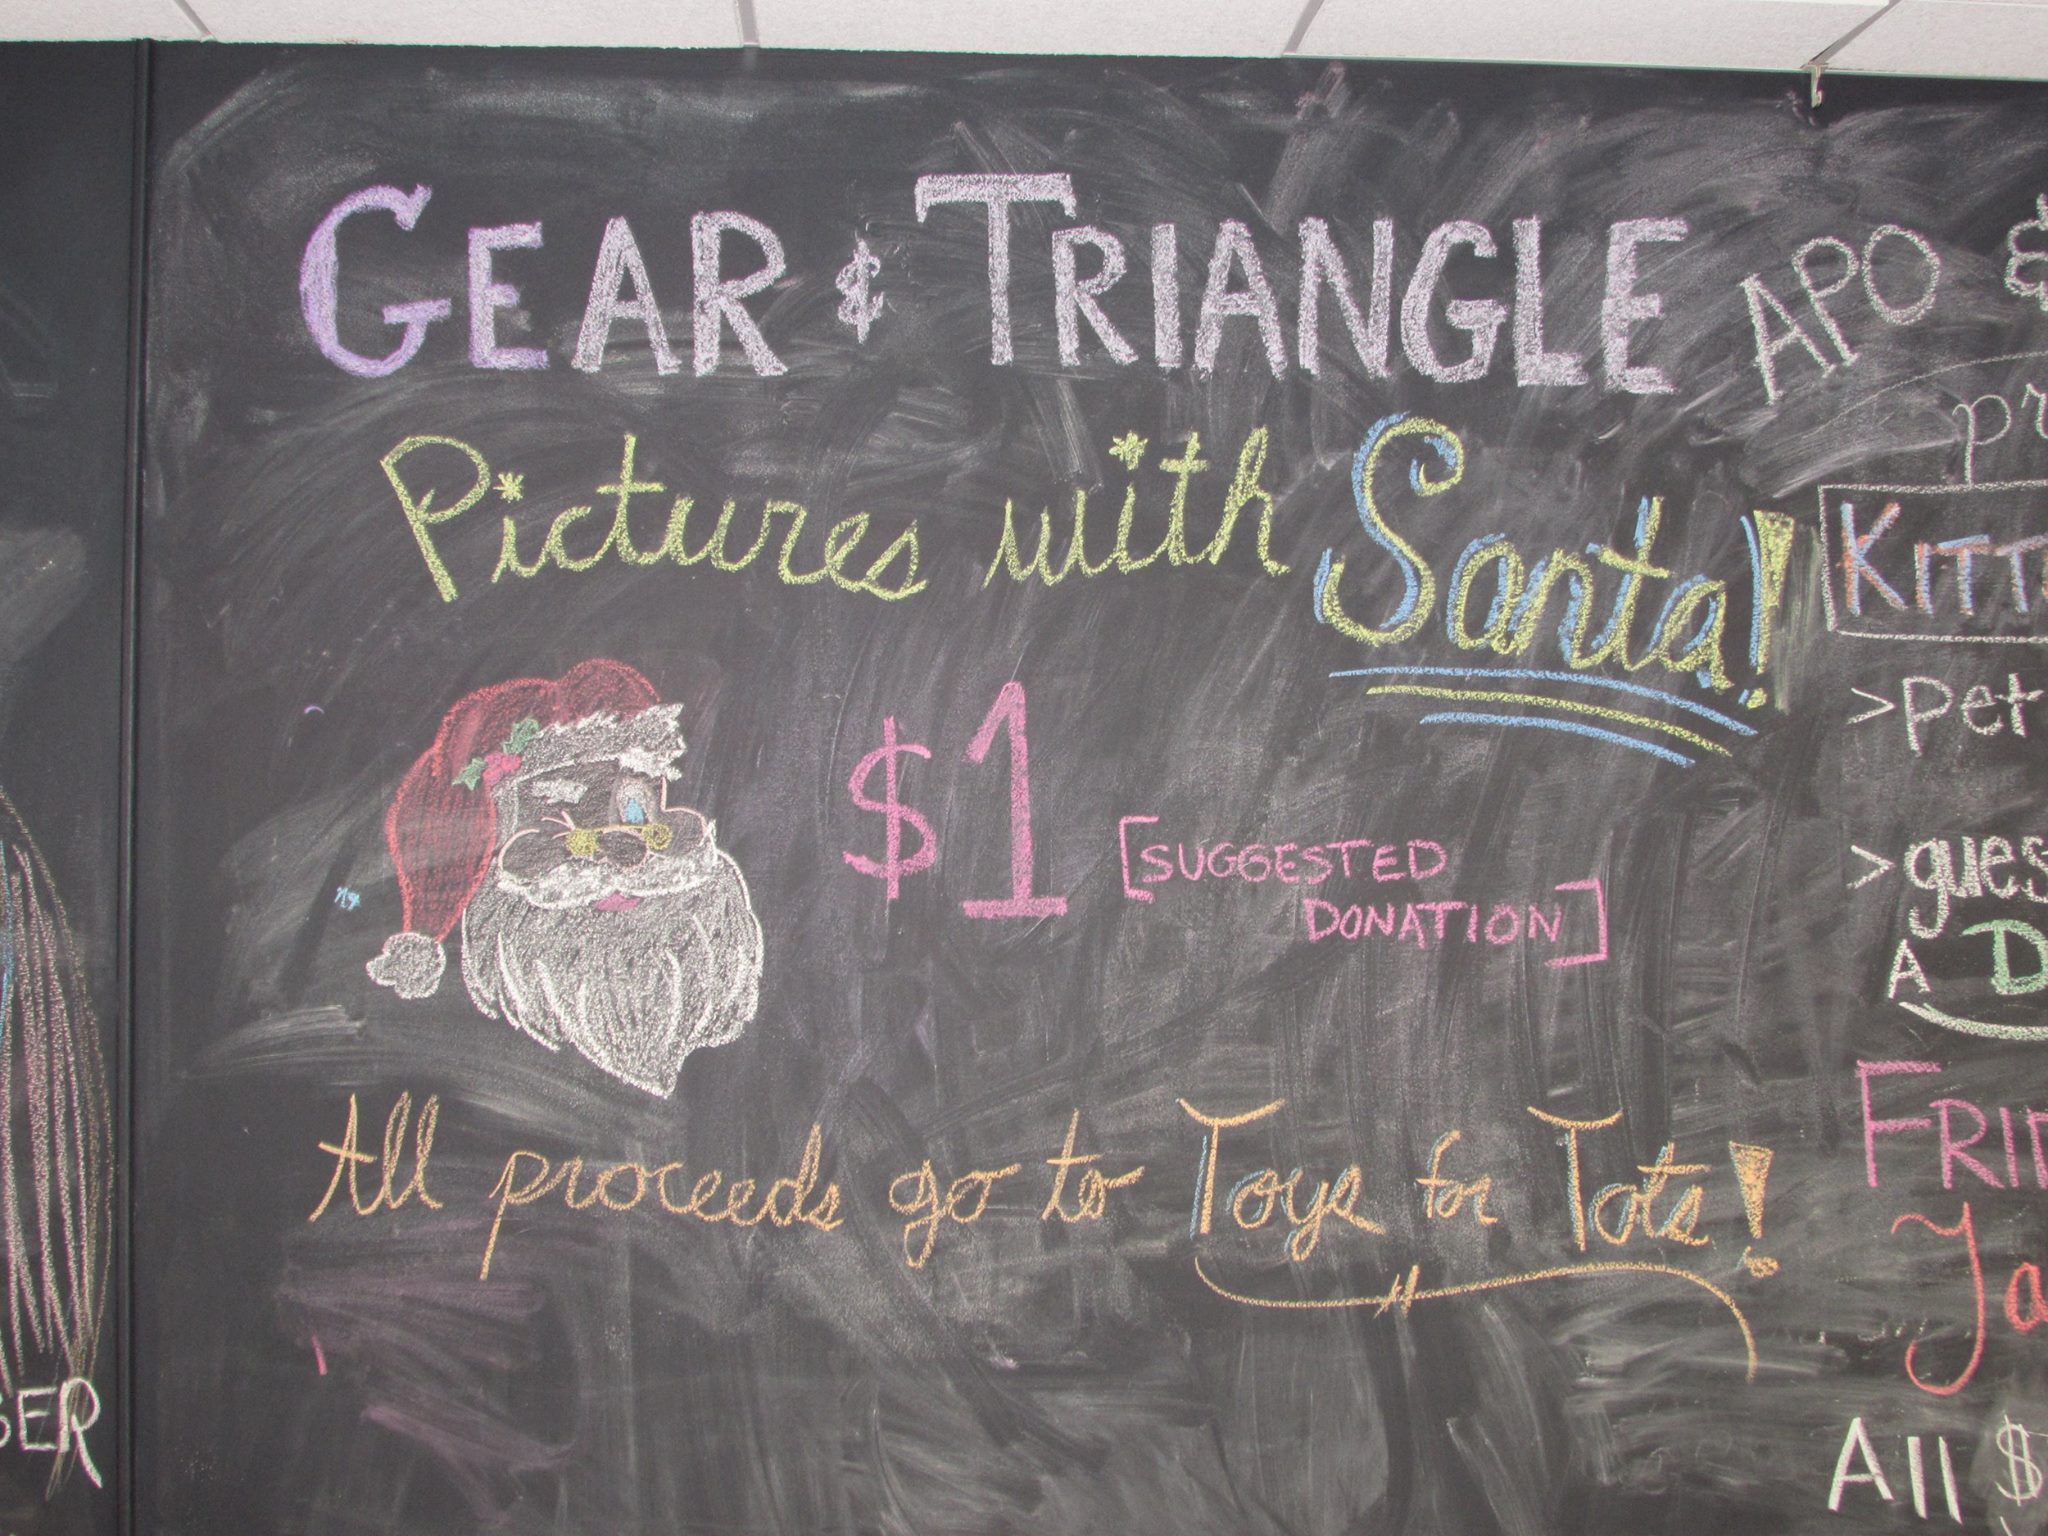 GEAR & TRIANGLE
Pictures with Santa!
$1 [SUGGESTED
DONATION]
All proceeds go to Toys for Tots!
APO &
>pet
A
All $